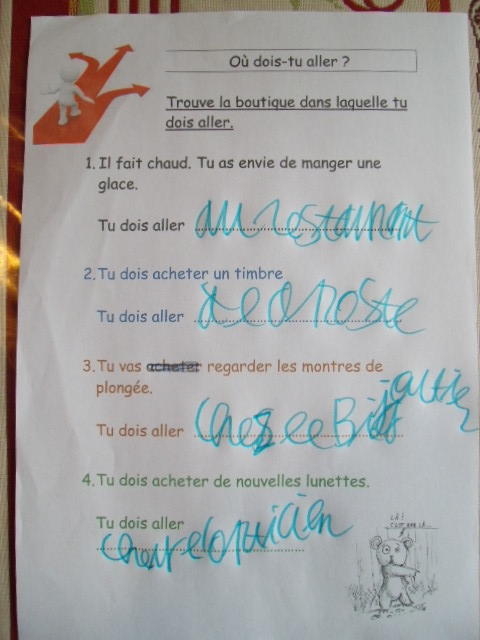 Où dois-tu aller ?
Trouve la boutique dans laquelle tu
dois aller.
1. Il fait chaud. Tu as envie de manger une
glace.
Tu dois aller au restaurant
2. Tu dois acheter un timbre
Tu dois aller a poste
3. Tu vas acheter regarder les montres de
plongée.
Tu dois aller Chez ee Bijoutier
4. Tu dois acheter de nouvelles lunettes.
Tu dois aller
opticien